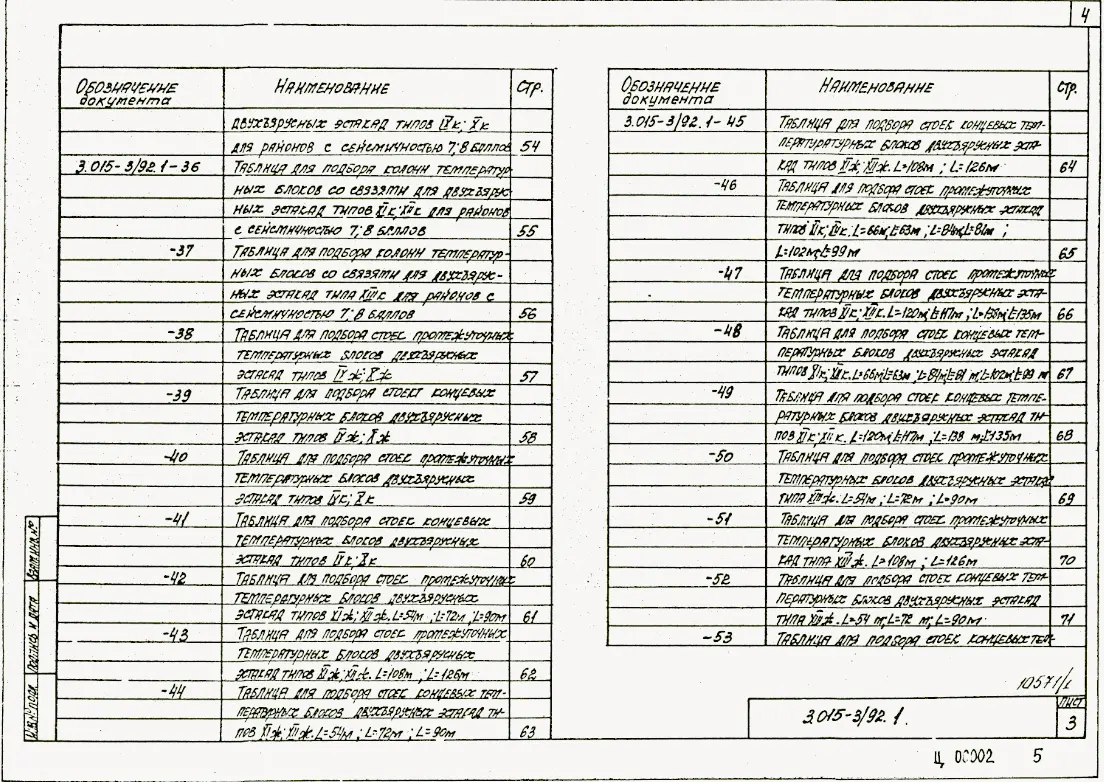 4
Обозначение документа Наименование Стр.
двухъярусных эстакад типов IXк; Xк
для районов с сейсмичностью 7; 8 баллов 54
3.015-3/92.1-36 Таблица для подбора колонн температур-
ных блоков со связями для двухъярус-
ных эстакад типов XIк; XIIк для районов
с сейсмичностью 7; 8 баллов 55
-37 Таблица для подбора колонн температур-
ных блоков со связями для двухъярус-
ных эстакад типа XIIIк для районов с
сейсмичностью 7; 8 баллов 56
-38 Таблица для подбора стоек промежуточных
температурных блоков двухъярусных
эстакад типов IXж; Xж 57
-39 Таблица для подбора стоек концевых
температурных блоков двухъярусных
эстакад типов IXж; Xж 58
-40 Таблица для подбора стоек промежуточных
температурных блоков двухъярусных
эстакад типов IXк; Xк 59
-41 Таблица для подбора стоек концевых
температурных блоков двухъярусных
эстакад типов IXк; Xк 60
-42 Таблица для подбора стоек промежуточных
температурных блоков двухъярусных
эстакад типов XIж; XIIж. L=54м; L=72м; L=90м 61
-43 Таблица для подбора стоек промежуточных
температурных блоков двухъярусных
эстакад типов XIж; XIIж. L=108м; L=126м 62
-44 Таблица для подбора стоек концевых тем-
пературных блоков двухъярусных эстакад ти-
пов XIж; XIIж. L=54м; L=72м; L=90м 63
Обозначение документа Наименование Стр.
3.015-3/92.1-45 Таблица для подбора стоек концевых тем-
пературных блоков двухъярусных эста-
кад типов XIж; XIIж. L=108м; L=126м 64
-46 Таблица для подбора стоек промежуточных
температурных блоков двухъярусных эстакад
типов XIк; XIIк. L=66м; L=63м; L=84м; L=81м;
L=102м; L=99м 65
-47 Таблица для подбора стоек промежуточных
температурных блоков двухъярусных эста-
кад типов XIк; XIIк. L=120м; L=117м; L=138м; L=135м 66
-48 Таблица для подбора стоек концевых тем-
пературных блоков двухъярусных эстакад
типов XIк; XIIк. L=66м; L=63м; L=84м; L=81м; L=102м; L=99м 67
-49 Таблица для подбора стоек концевых темпе-
ратурных блоков двухъярусных эстакад ти-
пов XIк; XIIк. L=120м; L=117м; L=138м; L=135м 68
-50 Таблица для подбора стоек промежуточных
температурных блоков двухъярусных эстакад
типа XIIIж. L=54м; L=72м; L=90м 69
-51 Таблица для подбора стоек промежуточных
температурных блоков двухъярусных эста-
кад типа XIIIж. L=108м; L=126м 70
-52 Таблица для подбора стоек концевых тем-
пературных блоков двухъярусных эстакад
типа XIIIж. L=54м; L=72м; L=90м 71
-53 Таблица для подбора стоек концевых тем-
10571/1
3.015-3/92.1.
Лист
3
Ц 00002 5
Взам.инв.№
Подпись и дата
Инв.№ подл.